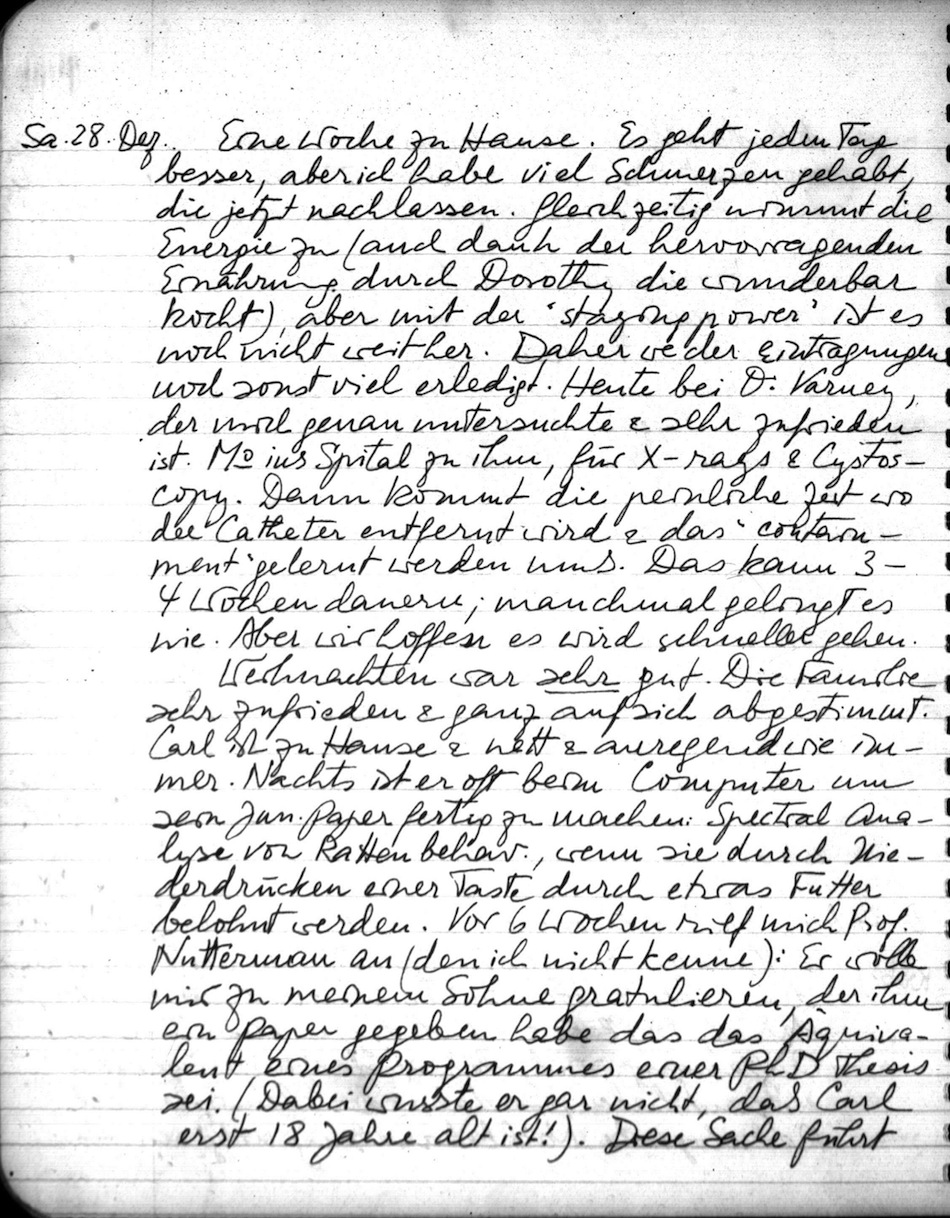 Sa. 28. Dez. Eine Woche zu Hause. Es geht jeden Tag
besser, aber ich habe viel Schmerzen gehabt,
die jetzt nachlassen. Gleichzeitig nimmt die
Energie zu (auch dank der hervorragenden
Ernährung durch Dorothy, die wunderbar
kocht), aber mit der "staying power" ist es
noch nicht weit her. Daher weder Eintragungen
noch sonst viel erledigt. Heute bei D. Varney,
der mich genau untersuchte & sehr zufrieden
ist. Mo ins Spital zu ihm, für X-rays & Cystos-
copy. Dann kommt die peinliche Zeit wo
der Catheter entfernt wird & das "contain-
ment" gelernt werden muß. Das kann 3-
4 Wochen dauern; manchmal gelingt es
nie. Aber wir hoffen es wird schneller gehen.
Weihnachten war sehr gut. Die Familie
sehr zufrieden & ganz auf sich abgestimmt.
Carl ist zu Hause & nett & anregend wie im-
mer. Nachts ist er oft beim Computer um
sein Jun. Paper fertig zu machen: Spectral Ana-
lyse von Ratten behav., wenn sie durch Nie-
derdrücken einer Taste durch etwas Futter
belohnt werden. Vor 6 Wochen rief mich Prof.
Nutterman an (den ich nicht kenne): Er wolle
mir zu meinem Sohne gratulieren, der ihm
ein Paper gegeben habe das das Äquiva-
lent eines Programmes einer PhD Thesis
sei. (Dabei wusste er gar nicht, daß Carl
erst 18 Jahre alt ist!). Diese Sache führt